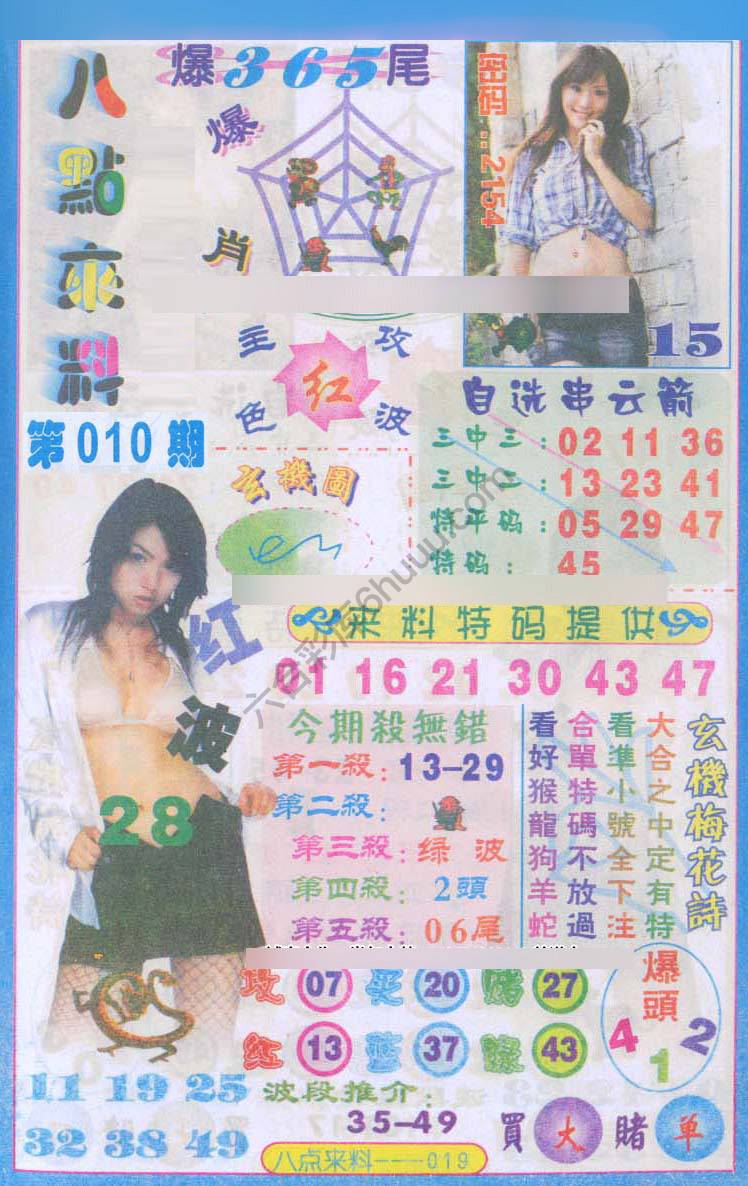 爆365尾
八點來料
第010期
爆肖
密码:2154
15
主攻
红
色波
自选串云箭
三中三:02 11 36
三中二:13 23 41
特平码:05 29 47
特码:45
玄機圖
六合彩库6huuu.com
来料特码提供
01 16 21 30 43 47
红波
28
今期殺無錯
第一殺:13-29
第二殺:
第三殺:绿波
第四殺:2頭
第五殺:06尾
玄機梅花詩
大合之中定有特
看準小號全下注
合單特碼不放過
看好猴龍狗羊蛇
攻 07 20 27
红 13 蓝 37 綠 43
爆頭
4 1 2
11 19 25
32 38 49
波段推介:
35-49
買大賭单
八点来料---019